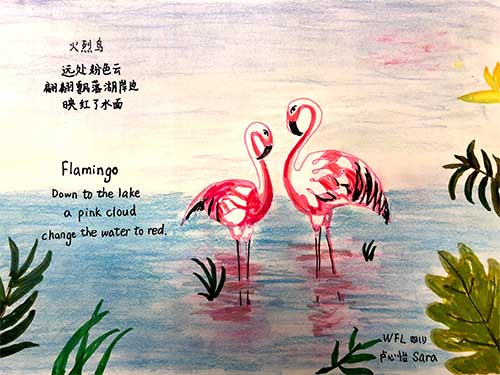 火烈鸟
远处粉色云
翩翩飘落湖岸边
映红了水面
Flamingo
Down to the lake
a pink cloud
change the water to red.
WFL 四(1)
卢心怡 Sara